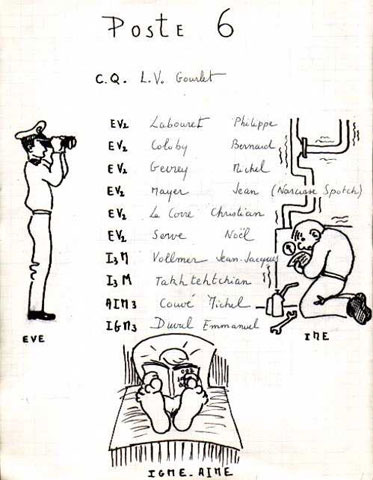 POSTE 6
C.Q. L.V. Gourlet
EV2 Labouret Philippe
EV2 Coloby Bernard
EV2 Gevrey Michel
EV2 Mayer Jean (Narcisse Spotch)
EV2 Le Corre Christian
EV2 Serve Noël
I3M Vollmer Jean-Jacques
I3M Takhtehtchian
AIM3 Couvé Michel
IGM3 Duval Emmanuel
EVE
IME
IGME-AIME